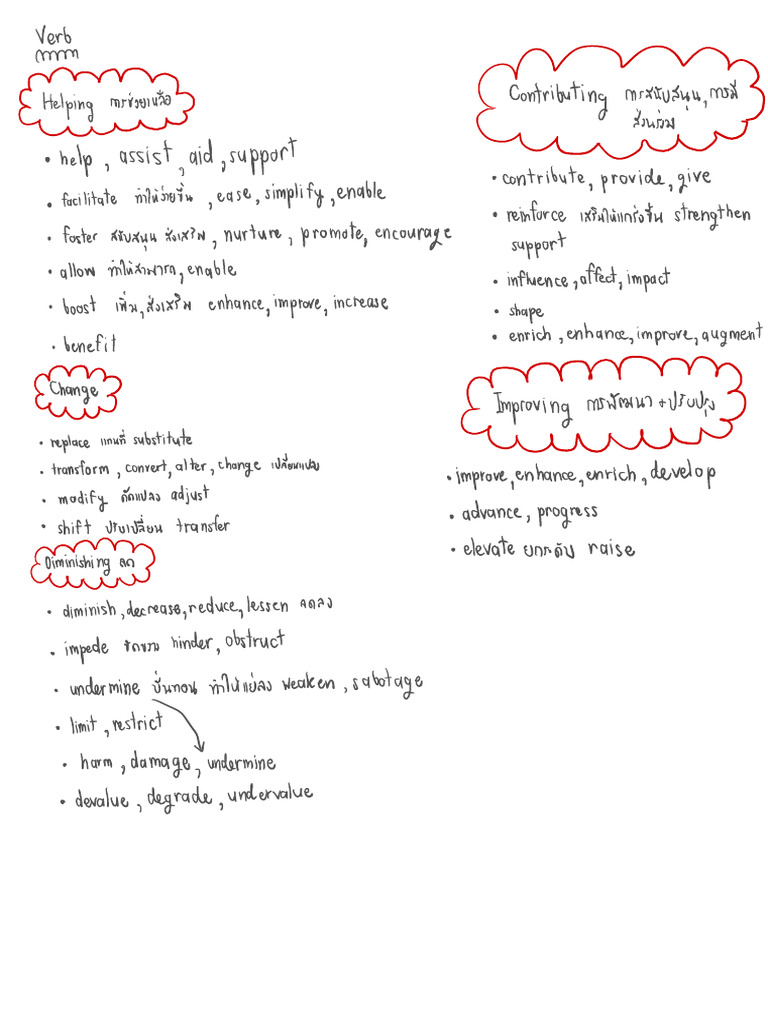 Verb
Helping การช่วยเหลือ
• help, assist, aid, support
• facilitate ทำให้ง่ายขึ้น, ease, simplify, enable
• foster สนับสนุน ส่งเสริม, nurture, promote, encourage
• allow ทำให้สามารถ, enable
• boost เพิ่ม, ส่งเสริม enhance, improve, increase
• benefit
Change
• replace แทนที่ substitute
• transform, convert, alter, change เปลี่ยนแปลง
• modify ดัดแปลง adjust
• shift ปรับเปลี่ยน transfer
Diminishing ลด
• diminish, decrease, reduce, lessen ลดลง
• impede ขัดขวาง hinder, obstruct
• undermine บั่นทอน ทำให้แย่ลง weaken, sabotage
• limit, restrict
• harm, damage, undermine
• devalue, degrade, undervalue
Contributing การสนับสนุน, การมี
ส่วนร่วม
• contribute, provide, give
• reinforce เสริมให้แกร่งขึ้น strengthen
support
• influence, affect, impact
• shape
• enrich, enhance, improve, augment
Improving การพัฒนา + ปรับปรุง
• improve, enhance, enrich, develop
• advance, progress
• elevate ยกระดับ raise